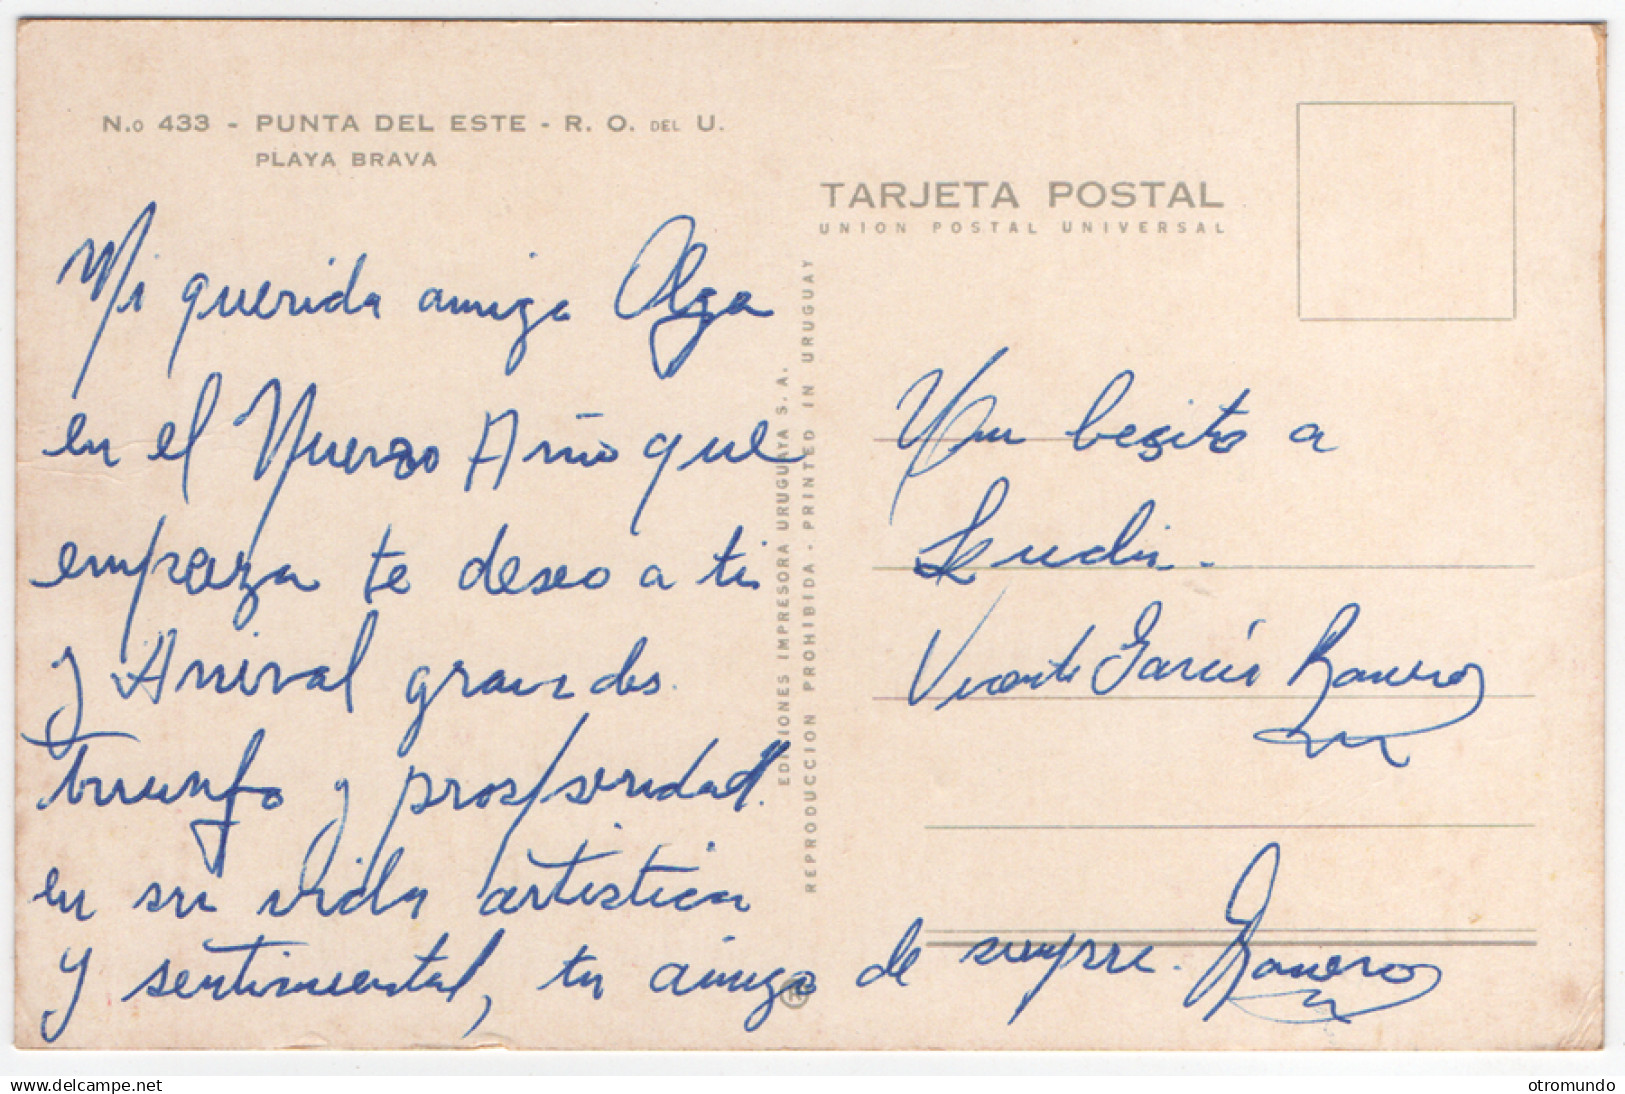 N.o 433 - PUNTA DEL ESTE - R. O. DEL U.
PLAYA BRAVA
TARJETA POSTAL
UNION POSTAL UNIVERSAL
Mi querida amiga Olga
en el Nuevo Año que
empieza te deseo a ti
y Anival grandes
triunfo y prosperidad.
en su vida artistica
y sentimental, tu amigo de siempre. Romero
EDICIONES IMPRESORA URUGUAYA S. A.
REPRODUCCION PROHIBIDA - PRINTED IN URUGUAY
Un besito a
Vicente García Romero
®
delcampe.net
otromundo